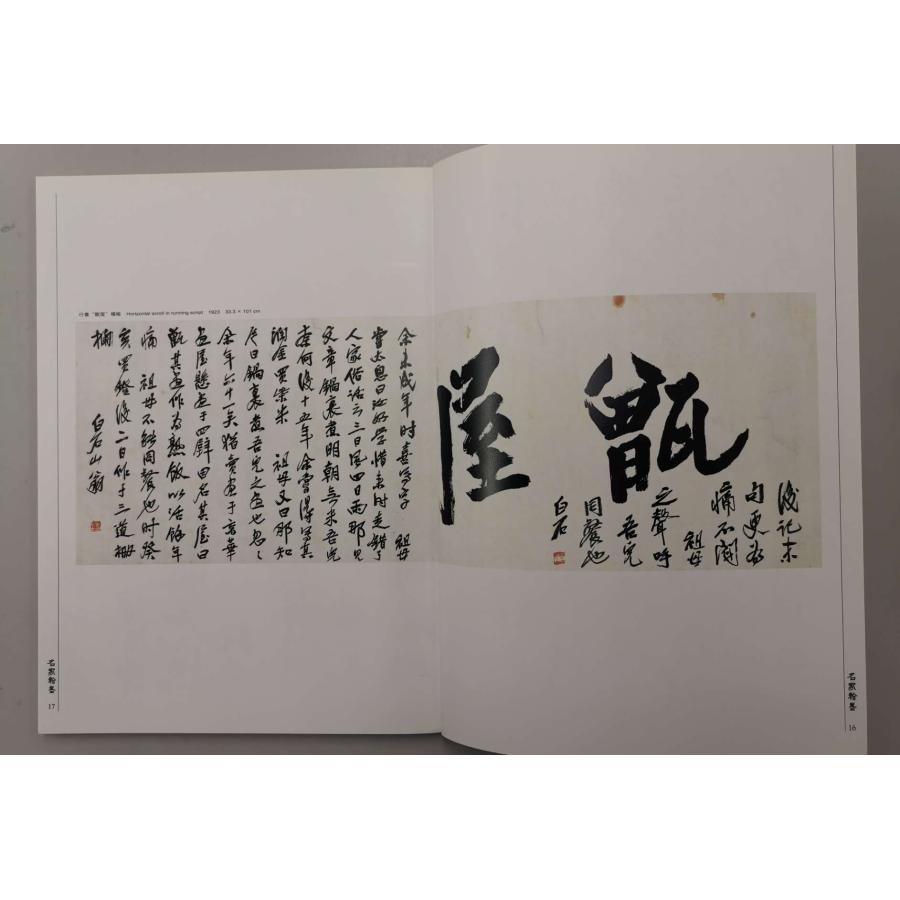 甑屋
後記末
句更為
痛不聞
祖母
之聲呼
吾兒
同餐也
白石
余未成年時喜寫字 祖母
嘗太息曰汝好學惜來時走錯了
人家俗話云三日風四日雨那見
文章鍋裏煮明朝無米吾兒
奈何後十五年余嘗得寫真
潤金買柴米 祖母又曰那知
今日鍋裏煮吾兒之畫也忽忽
余年六十一矣猶賣畫于京華
畫屋懸畫于四壁因名其屋曰
甑其畫作為熟飯以活餘年
痛 祖母不能同餐也時癸
亥買鐙後二日作于三道柵
欄
白石山翁
行書“甑屋”橫幅 Horizontal scroll in running script 1923 33.3 × 101 cm
名家翰墨
17
名家翰墨
16